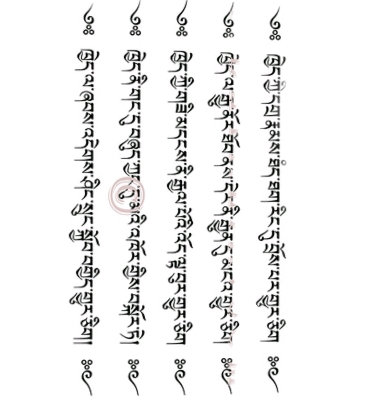 ༄༅ ཁྱེད་ཀྱི་དགྲ་རྣམས་ཐེད་ཐག་རིང་དུ་བྲོས་པར་གྱུར་ཅིག
༄༅ ཁྱེད་ལ་རྒྱུ་ནོར་ཐོབ་ནས་དེར་ནི་རྒྱུན་དུ་མངའ་གྱུར་ཅིག
༄༅ ཁྱེད་ཀྱི་གཟི་མདངས་ནི་རྒྱལ་པོའི་འོད་ལྟ་བུར་གྱུར་ཅིག
༄༅ ཁྱེད་ནི་གང་དུ་བཞུད་ཀྱང་དུ་མའི་འཁོར་གྱིས་བསྐོར་ཏེ།
༄༅ ཁྱེད་ལ་ཞབས་འདེགས་ཤིང་སྲུང་སྐྱོབ་བགྱིད་གྱུར་ཅིག།